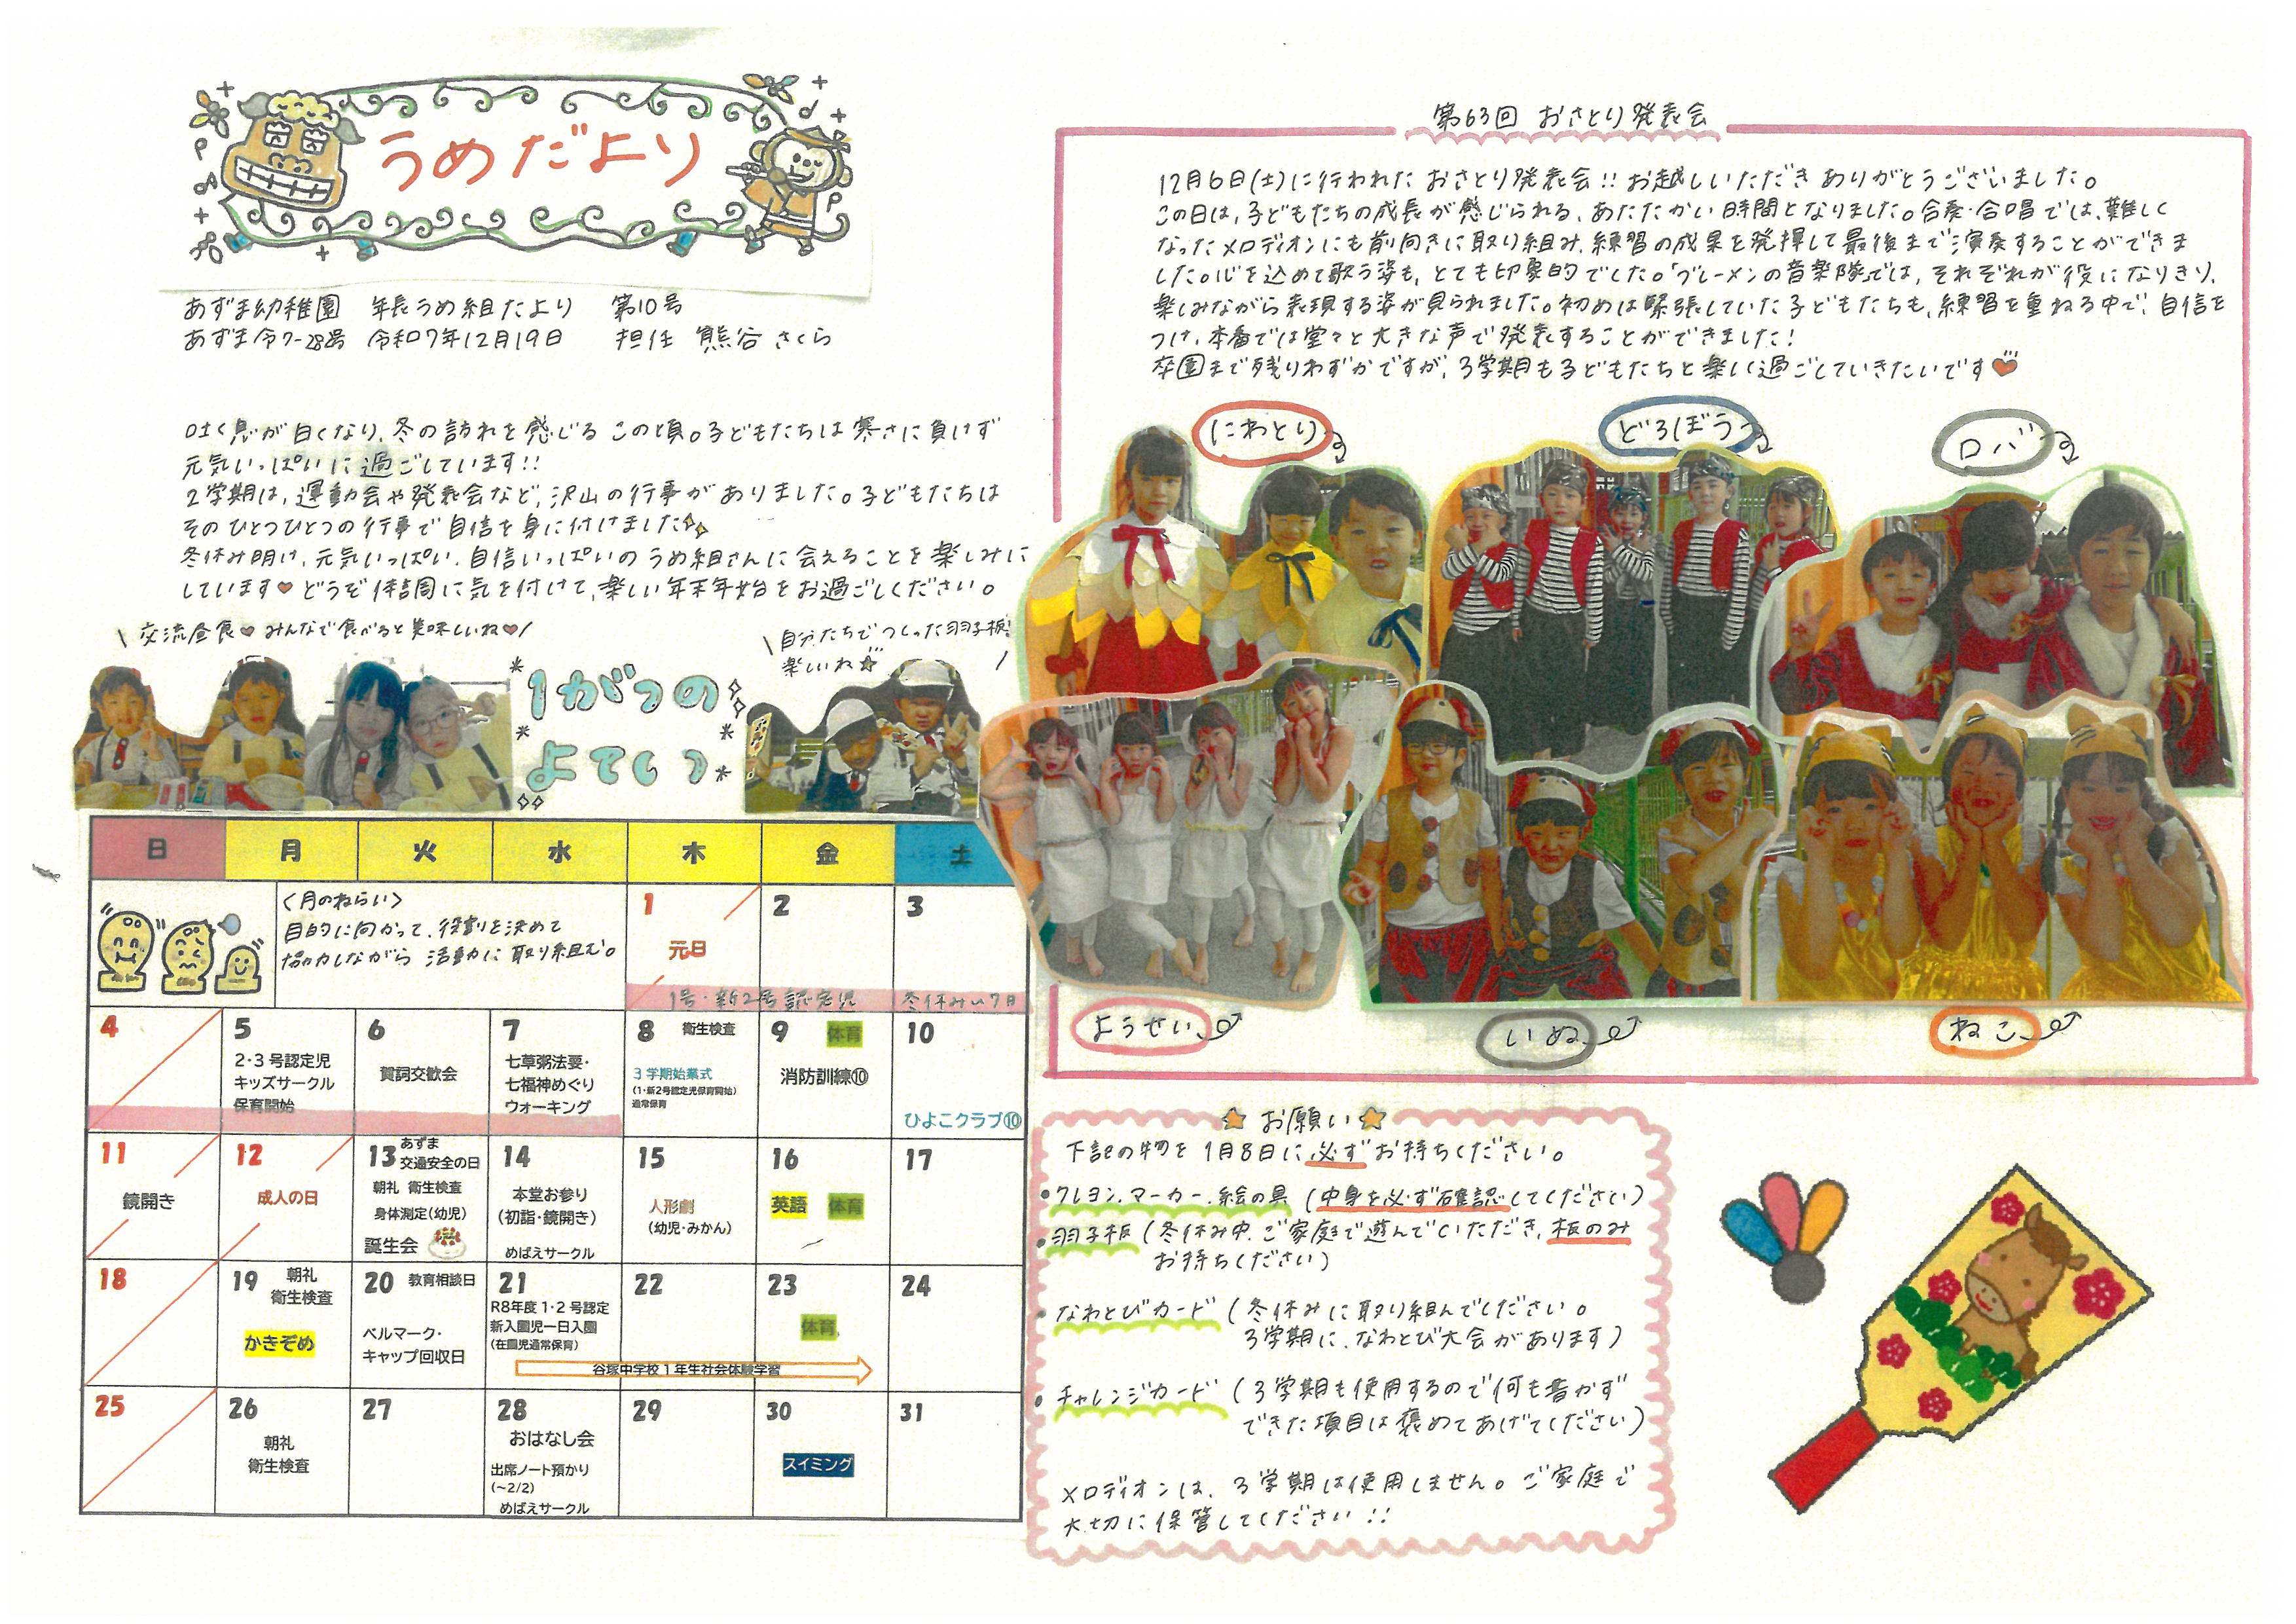 うめだより
あずま幼稚園 年長うめ組だより 第10号
あずま令7-28号 令和7年12月19日 担任 熊谷さくら
吐く息が白くなり、冬の訪れを感じるこの頃。子どもたちは寒さに負けず
元気いっぱいに過ごしています!!
2学期は、運動会や発表会など、沢山の行事がありました。子どもたちは
そのひとつひとつの行事で自信を身に付けました
冬休み明け、元気いっぱい、自信いっぱいのうめ組さんに会えることを楽しみに
しています♥どうぞ体調に気を付けて、楽しい年末年始をお過ごしください。
\交流昼食♥みんなで食べると美味しいね♥/
\自分たちでつくった羽子板!
楽しいね☆/
1がつの
よてい
日 月 火 水 木 金 土
〈月のねらい〉
目的に向かって、役割を決めて
協力しながら 活動に取り組む。
1 元日
2
3
1号・新2号認定児 冬休み〜7日
4
5
2・3号認定児
キッズサークル
保育開始
6
賀詞交歓会
7
七草粥法要・
七福神めぐり
ウォーキング
8 衛生検査
3学期始業式
(1・新2号認定児保育開始)
通常保育
9 体育
消防訓練⑩
10
ひよこクラブ⑩
11
鏡開き
12
成人の日
13 あずま
交通安全の日
朝礼 衛生検査
身体測定(幼児)
誕生会
14
本堂お参り
(初詣・鏡開き)
めばえサークル
15
人形劇
(幼児・みかん)
16
英語 体育
17
18
19 朝礼
衛生検査
かきぞめ
20 教育相談日
ベルマーク・
キャップ回収日
21
R8年度1・2号認定
新入園児一日入園
(在園児通常保育)
22
23
体育
24
谷塚中学校1年生社会体験学習
25
26
朝礼
衛生検査
27
28
おはなし会
出席ノート預かり
(~2/2)
めばえサークル
29
30
スイミング
31
第63回 おさとり発表会
12月6日(土)に行われたおさとり発表会!!お越しいただきありがとうございました。
この日は、子どもたちの成長が感じられる、あたたかい時間となりました。合奏・合唱では、難しく
なったメロディオンにも前向きに取り組み、練習の成果を発揮して最後まで演奏することができま
した。心を込めて歌う姿も、とても印象的でした。「ブレーメンの音楽隊」では、それぞれが役になりきり、
楽しみながら表現する姿が見られました。初めは緊張していた子どもたちも、練習を重ねる中で、自信を
つけ、本番では堂々と大きな声で発表することができました!
卒園まで残りわずかですが、3学期も子どもたちと楽しく過ごしていきたいです♥
にわとり
どろぼう
ロバ
ようせい
いぬ
ねこ
☆お願い☆
下記の物を1月8日に必ずお持ちください。
•クレヨン、マーカー、絵の具(中身を必ず確認してください)
•羽子板(冬休み中、ご家庭で遊んでいただき、板のみ
お持ちください)
•なわとびカード(冬休みに取り組んでください。
3学期に、なわとび大会があります)
•チャレンジカード(3学期も使用するので何も書かず
できた項目は褒めてあげてください)
メロディオンは、3学期は使用しません。ご家庭で
大切に保管してください!!